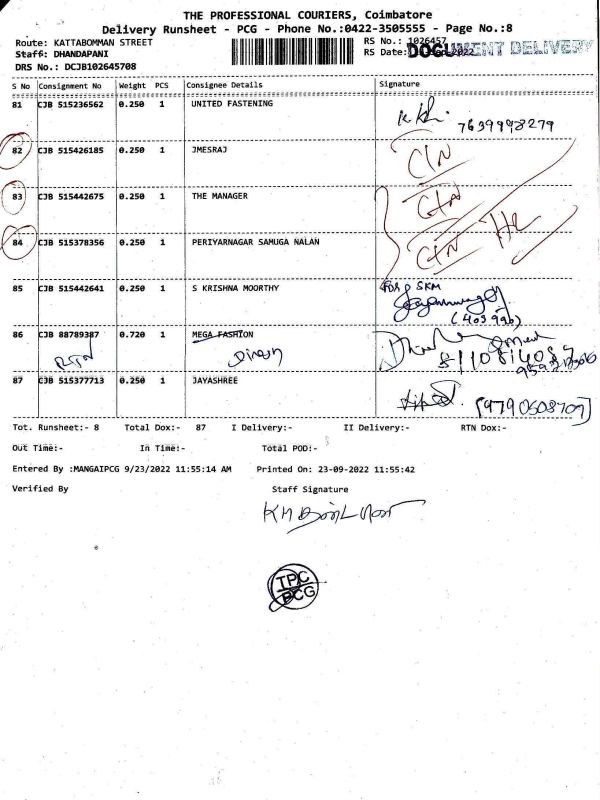 THE PROFESSIONAL COURIERS, Coimbatore
Delivery Runsheet - PCG - Phone No.:0422-3505555 - Page No.:8
Route: KATTABOMMAN STREET RS No.: 1026457
Staff: DHANDAPANI RS Date: DOCUMENT DELIVERY
DRS No.: DCJB102645708
S No Consignment No Weight PCS Consignee Details Signature
81 CJB 515236562 0.250 1 UNITED FASTENING
7639998279
82 CJB 515426185 0.250 1 JMESRAJ CIN
83 CJB 515442675 0.250 1 THE MANAGER CIN
84 CJB 515378356 0.250 1 PERIYARNAGAR SAMUGA NALAN CIN
85 CJB 515442641 0.250 1 S KRISHNA MOORTHY SKM
86 CJB 88789387 0.720 1 MEGA FASHION
RTN
87 CJB 515377713 0.250 1 JAYASHREE [9790608707]
Tot. Runsheet:- 8 Total Dox:- 87 I Delivery:- II Delivery:- RTN Dox:-
Out Time:- In Time:- Total POD:-
Entered By :MANGAIPCG 9/23/2022 11:55:14 AM Printed On: 23-09-2022 11:55:42
Verified By Staff Signature
TPC
PCG